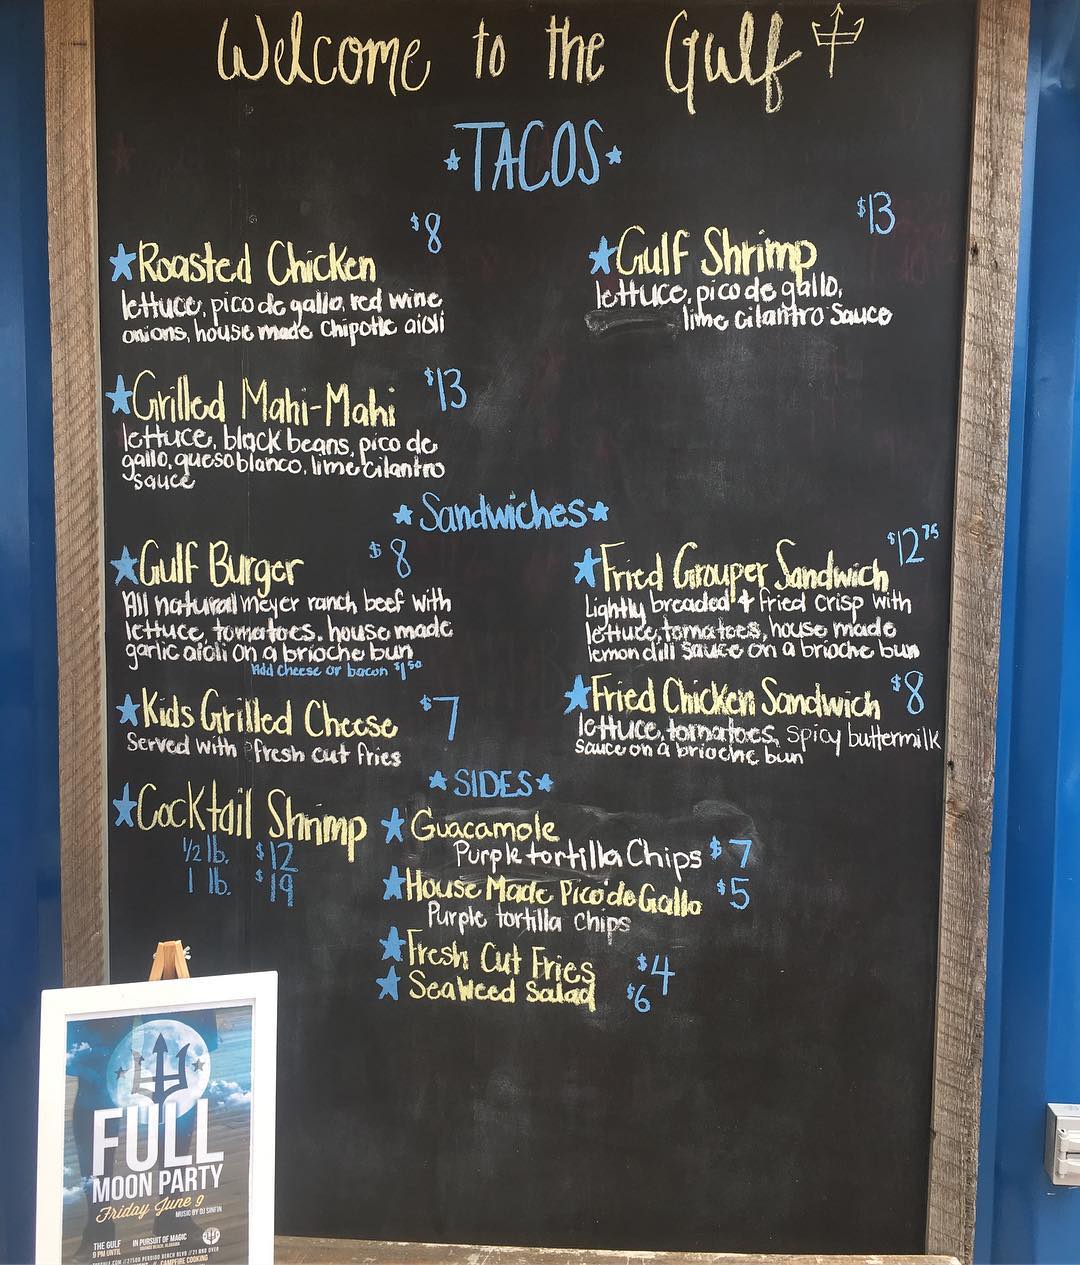 Welcome to the Gulf
TACOS
$8
Roasted Chicken
lettuce, pico de gallo, red wine
onions, house made Chipotle aioli
$13
Gulf Shrimp
lettuce, pico de gallo,
lime cilantro sauce
Grilled Mahi-Mahi $13
lettuce, black beans, pico de
gallo, queso blanco, lime cilantro
sauce
Sandwiches
Gulf Burger $8
All natural meyer ranch beef with
lettuce, tomatoes. house made
garlic aioli on a brioche bun
Add cheese or bacon $1.50
$12 75
Fried Grouper Sandwich
Lightly breaded & fried crisp with
lettuce, tomatoes, house made
lemon dill sauce on a brioche bun
Kids Grilled Cheese $7
Served with fresh cut fries
Fried Chicken Sandwich $8
lettuce, tomatoes, spicy buttermilk
sauce on a brioche bun
Cocktail Shrimp
1/2 lb. $12
1 lb. $19
SIDES
Guacamole
Purple tortilla Chips $7
House Made Pico de Gallo $5
Purple tortilla Chips
Fresh Cut Fries $4
Seaweed Salad $6
FULL
MOON PARTY
Friday June 9
MUSIC BY DJ SINFIN
THE GULF
9 PM UNTIL
IN PURSUIT OF MAGIC
ORANGE BEACH, ALABAMA
27500 PERDIDO BEACH BLVD // 21 AND OVER
// CAMPFIRE COOKING